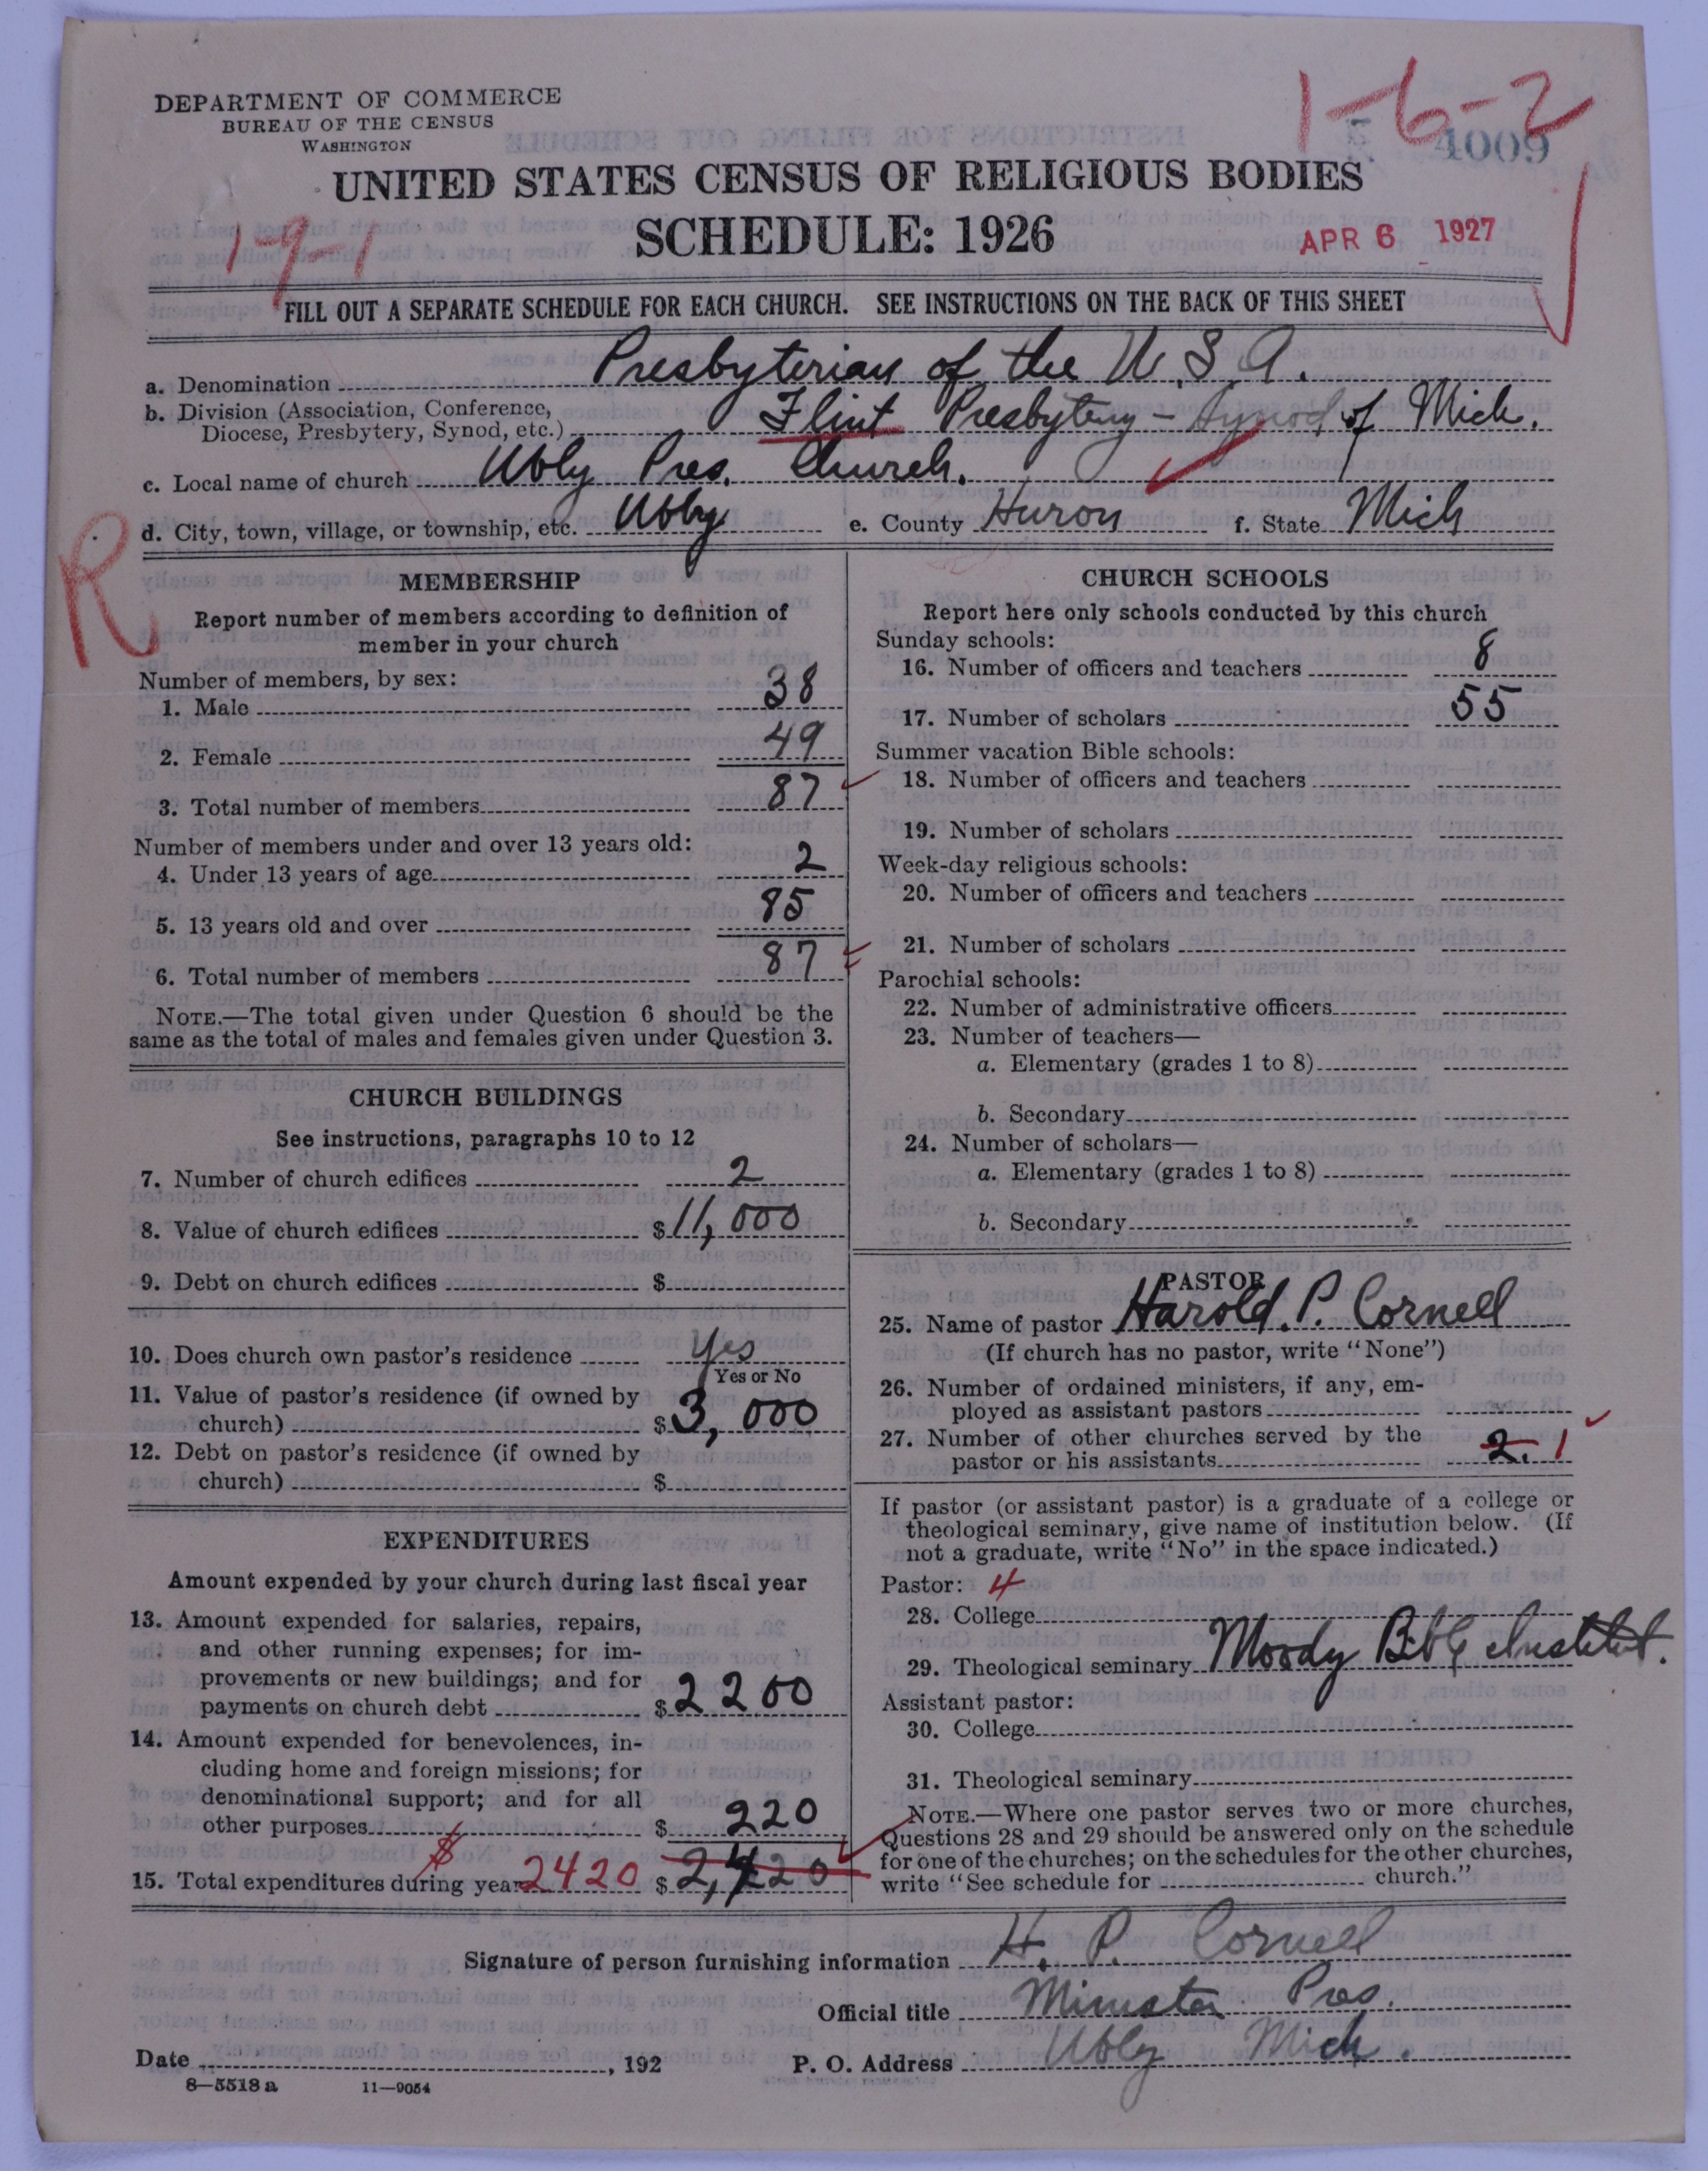 DEPARTMENT OF COMMERCE
BUREAU OF THE CENSUS
WASHINGTON
1-6-2
4009
UNITED STATES CENSUS OF RELIGIOUS BODIES
SCHEDULE: 1926
1-9-1
APR 6 1927
FILL OUT A SEPARATE SCHEDULE FOR EACH CHURCH. SEE INSTRUCTIONS ON THE BACK OF THIS SHEET
a. Denomination Presbyterian of the U.S.A.
b. Division (Association, Conference,
Diocese, Presbytery, Synod, etc.) Flint Presbytery - Synod of Mich.
c. Local name of church Ubly Pres. Church.
d. City, town, village, or township, etc. Ubly e. County Huron f. State Mich
R
MEMBERSHIP
Report number of members according to definition of
member in your church
Number of members, by sex:
1. Male 38
2. Female 49
3. Total number of members 87
Number of members under and over 13 years old:
4. Under 13 years of age 2
5. 13 years old and over 85
6. Total number of members 87
NOTE.—The total given under Question 6 should be the
same as the total of males and females given under Question 3.
CHURCH BUILDINGS
See instructions, paragraphs 10 to 12
7. Number of church edifices 2
8. Value of church edifices $11,000
9. Debt on church edifices $
10. Does church own pastor's residence Yes
Yes or No
11. Value of pastor's residence (if owned by
church) $3,000
12. Debt on pastor's residence (if owned by
church) $
EXPENDITURES
Amount expended by your church during last fiscal year
13. Amount expended for salaries, repairs,
and other running expenses; for im-
provements or new buildings; and for
payments on church debt $2200
14. Amount expended for benevolences, in-
cluding home and foreign missions; for
denominational support; and for all
other purposes $220
15. Total expenditures during year $2420 $2,420
CHURCH SCHOOLS
Report here only schools conducted by this church
Sunday schools:
16. Number of officers and teachers 8
17. Number of scholars 55
Summer vacation Bible schools:
18. Number of officers and teachers
19. Number of scholars
Week-day religious schools:
20. Number of officers and teachers
21. Number of scholars
Parochial schools:
22. Number of administrative officers
23. Number of teachers—
a. Elementary (grades 1 to 8)
b. Secondary
24. Number of scholars—
a. Elementary (grades 1 to 8)
b. Secondary
PASTOR
25. Name of pastor Harold. P. Cornell
(If church has no pastor, write "None")
26. Number of ordained ministers, if any, em-
ployed as assistant pastors
27. Number of other churches served by the
pastor or his assistants 2. 1
If pastor (or assistant pastor) is a graduate of a college or
theological seminary, give name of institution below. (If
not a graduate, write "No" in the space indicated.)
Pastor: 4
28. College
29. Theological seminary Moody Bible Institut.
Assistant pastor:
30. College
31. Theological seminary
NOTE.—Where one pastor serves two or more churches,
Questions 28 and 29 should be answered only on the schedule
for one of the churches; on the schedules for the other churches,
write "See schedule for church."
Signature of person furnishing information H. P. Cornell
Official title Minister Pres.
Date , 192 P. O. Address Ubly Mich.
8—5518 a 11—9054